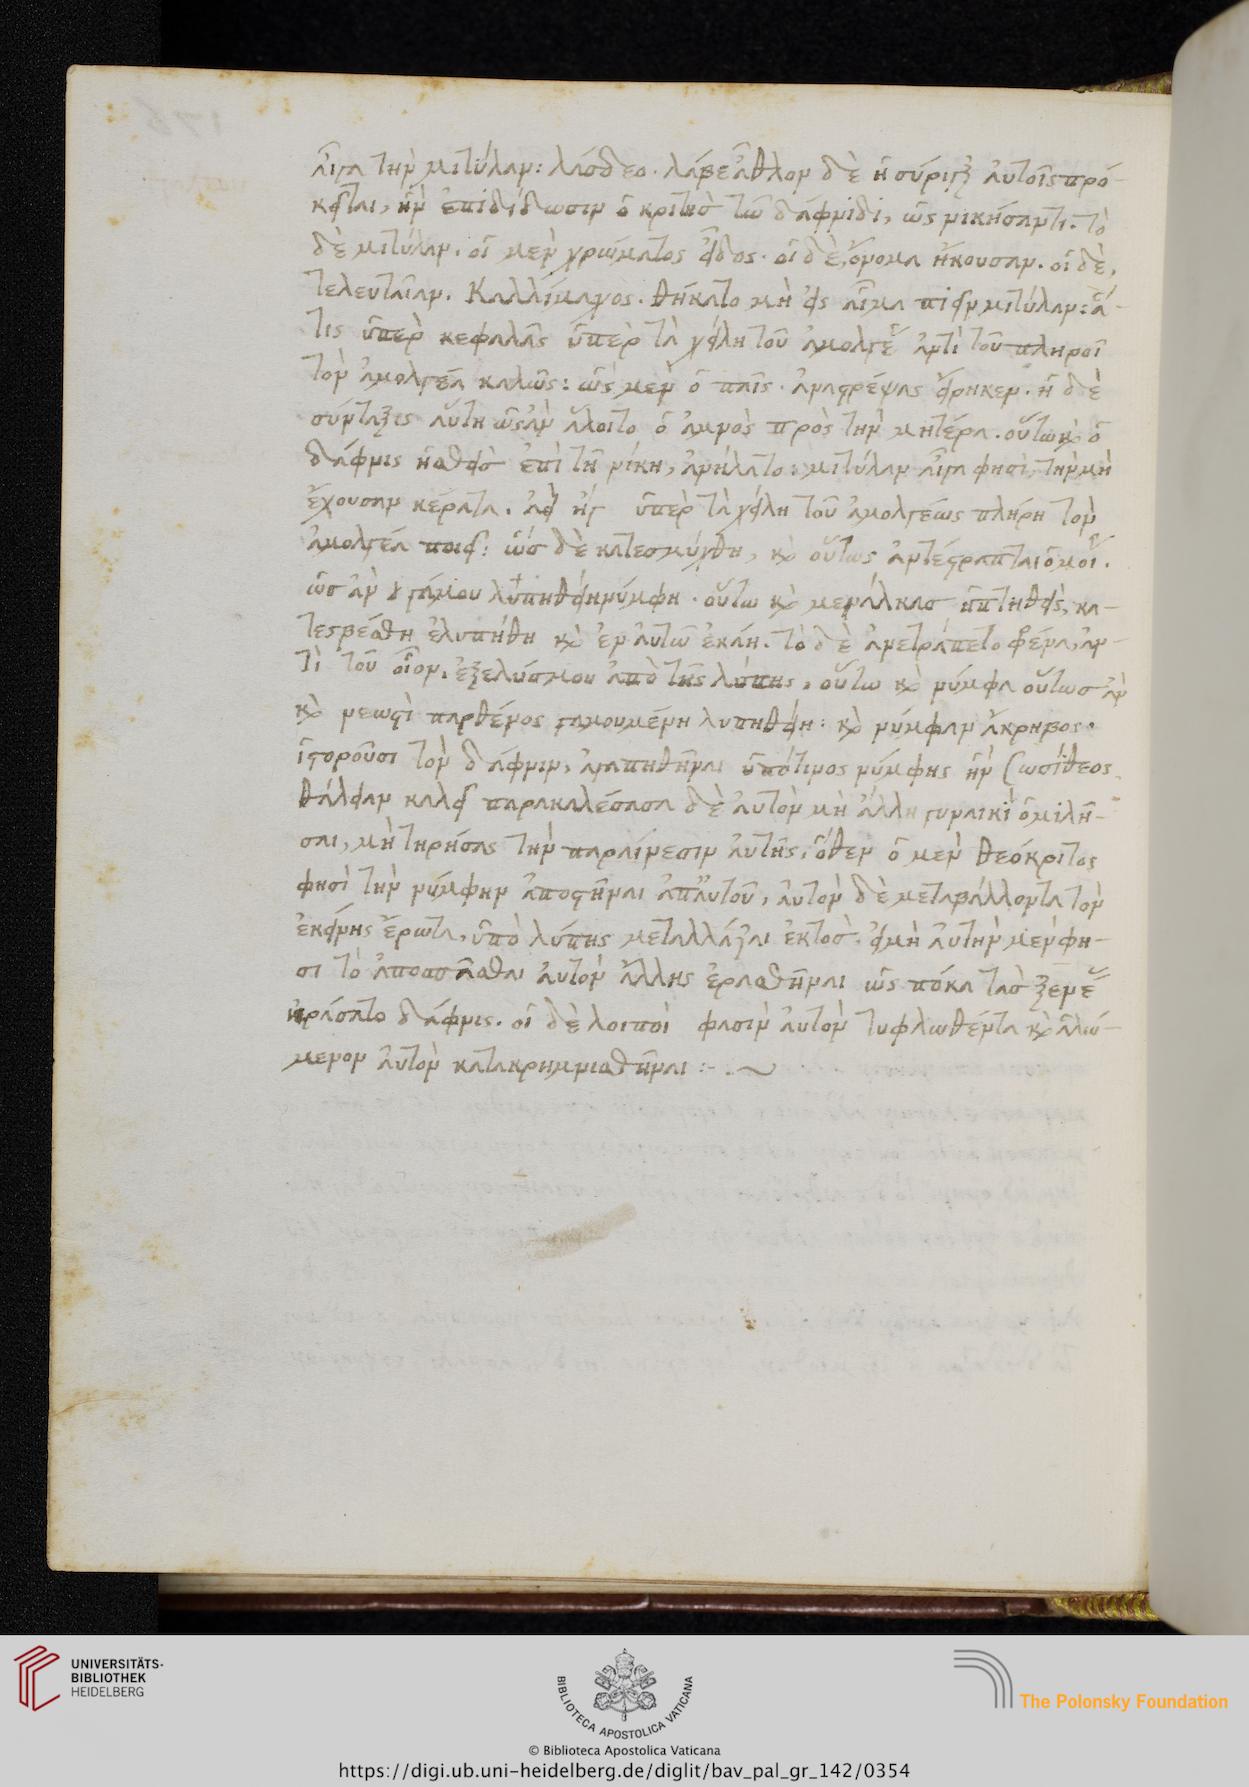 αἶγα τὴν μιτύλαν: λάσδεο. λάβε ἆθλον δὲ ἡ σύριγξ αὐτοῖς πρό-
κειται, ἣν ἐπιδίδωσιν ὁ κριτὴσ τῶ δάφνιδι, ὡς νικήσαντι. τὸ
δὲ μιτύλαν. οἱ μὲν χρώματος εἶδος. οἱ δὲ, ὄνομα ἤκουσαν. οἱ δὲ,
τελευταίαν. Καλλίμαχος. θήκατο μὴ εἰς αἷμα πιεῖν μιτύλαν: ἅ-
τις ὑπὲρ κεφαλᾶς ὑπὲρ τὰ χείλη τοῦ ἀμολγέως ἀντὶ τοῦ πληροῖ
τὸν ἀμολγέα καλῶς: ὡς μὲν ὁ παῖς. ἀναστρέψας εἴρηκεν. ἡ δὲ
σύνταξις αὕτη ὡς ἂν ἅλοιτο ὁ ἀμνὸς πρὸς τὴν μητέρα. οὕτω καὶ ὁ
δάφνις ἡσθεὶσ ἐπὶ τῆ νίκη, ἀνήλατο: μιτύλαν αἶγα φησὶ, τὴν μὴ
ἔχουσαν κέρατα. ὑπὲρ τὰ χείλη τοῦ ἀμολγέως πλήρη τὸν
ἀμολγέα ποιεῖ: ὡσ δὲ κατεσμύχθη, καὶ οὕτως
οὕτω καὶ μενάλκασ ἡττηθεὶς, κα-
τεσβέσθη ἐλυπήθη καὶ ἐν αὐτῶ ἐκάη. τὸ δὲ ἀνετράπετο φρένα, ἀν-
τὶ τοῦ οἷον, ἐξελύσμου ἀπὸ τῆς λύπης, οὕτω καὶ νύμφα οὕτωσ ἂν
καὶ νεωστὶ παρθένος γαμουμένη λυπηθείη: καὶ νύμφαν ἄκρηβος.
ἱστοροῦσι τὸν δάφνιν, ἀγαπηθῆναι ὑπό τινος νύμφης ἣν Σωσίθεος
θάλειαν καλεῖ παρακαλέσασα δὲ αὐτὸν μὴ ἄλλη γυναικὶ ὁμιλῆ-
σαι, μὴ τηρήσας τὴν παραίνεσιν αὐτῆς, ὅθεν ὁ μὲν θεόκριτος
φησὶ τὴν νύμφην ἀποστῆναι ἀπ' αὐτοῦ, αὐτὸν δὲ μεταβάλλοντα τὸν
ἐκείνης ἔρωτα, ὑπὸ λύπης μεταλλάξαι ἐκτὸσ. εἰ μὴ αὐτὴν μέμφη-
σι τὸ ἀποσπᾶσθαι αὐτὸν ἄλλης ἐρασθῆναι ὡς πόκα τᾶσ ξενέας
ἠράσατο δάφνις. οἱ δὲ λοιποί φασιν αὐτὸν τυφλωθέντα καὶ ἀλώ-
μενον αὐτὸν κατακρημνισθῆναι:-
UNIVERSITÄTS-
BIBLIOTHEK
HEIDELBERG
BIBLIOTECA APOSTOLICA VATICANA
The Polonsky Foundation
© Biblioteca Apostolica Vaticana
https://digi.ub.uni-heidelberg.de/diglit/bav_pal_gr_142/0354